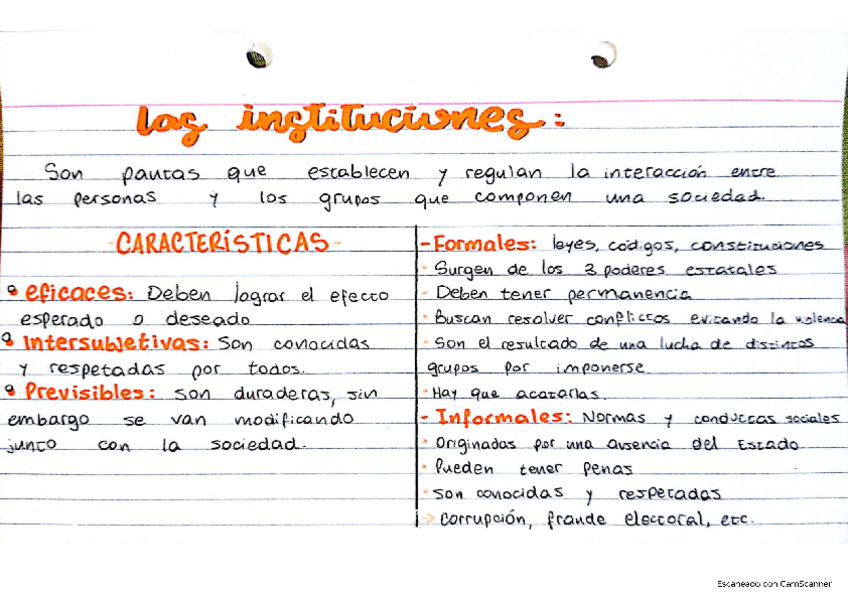 las instituciones:
Son pautas que establecen y regulan la interacción entre
las personas y los grupos que componen una sociedad.
-CARACTERÍSTICAS-
eficaces: Deben lograr el efecto
esperado o deseado
Intersubjetivas: Son conocidas
y respetadas por todos.
Previsibles: son duraderas, sin
embargo se van modificando
junto con la sociedad.
-Formales: leyes, códigos, constituciones
· Surgen de los 3 poderes estatales
· Deben tener permanencia
· Buscan resolver conflictos evitando la violencia
· Son el resultado de una lucha de distintos
grupos por imponerse.
· Hay que acatarlas.
- Informales: Normas y conductas sociales
· Originadas por una ausencia del Estado
· Pueden tener penas
· son conocidas y respetadas
→ corrupción, fraude electoral, etc.
Escaneado con CamScanner